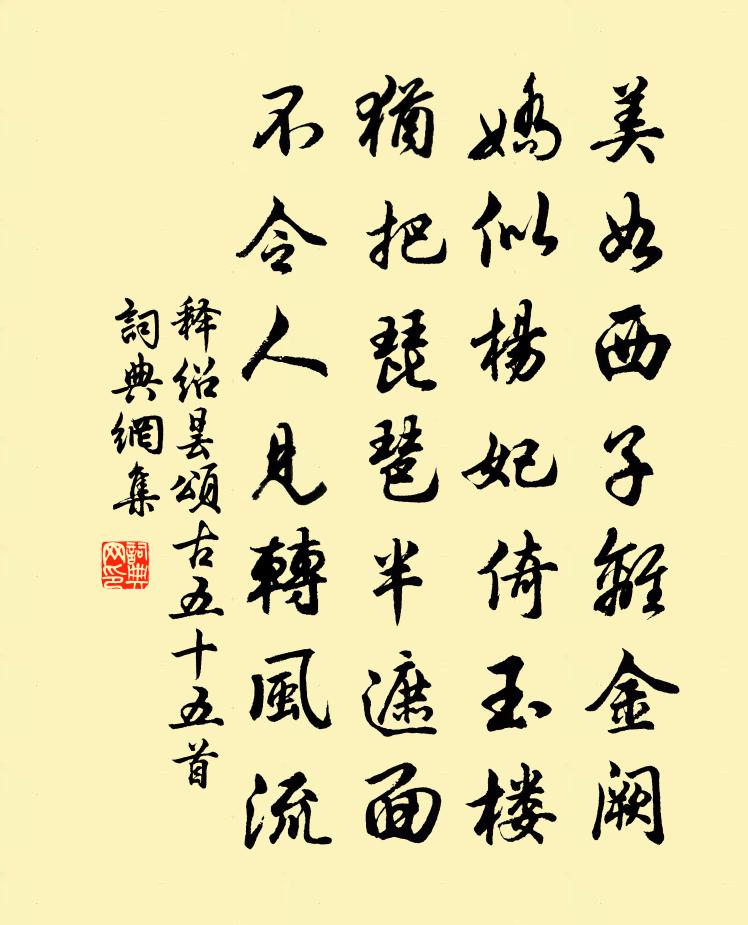 美如西子離金闕
嬌似楊妃倚玉楼
猶把琵琶半遮面
不令人見轉風流
释绍昙頌古五十五首
詞典網集
詞典网印